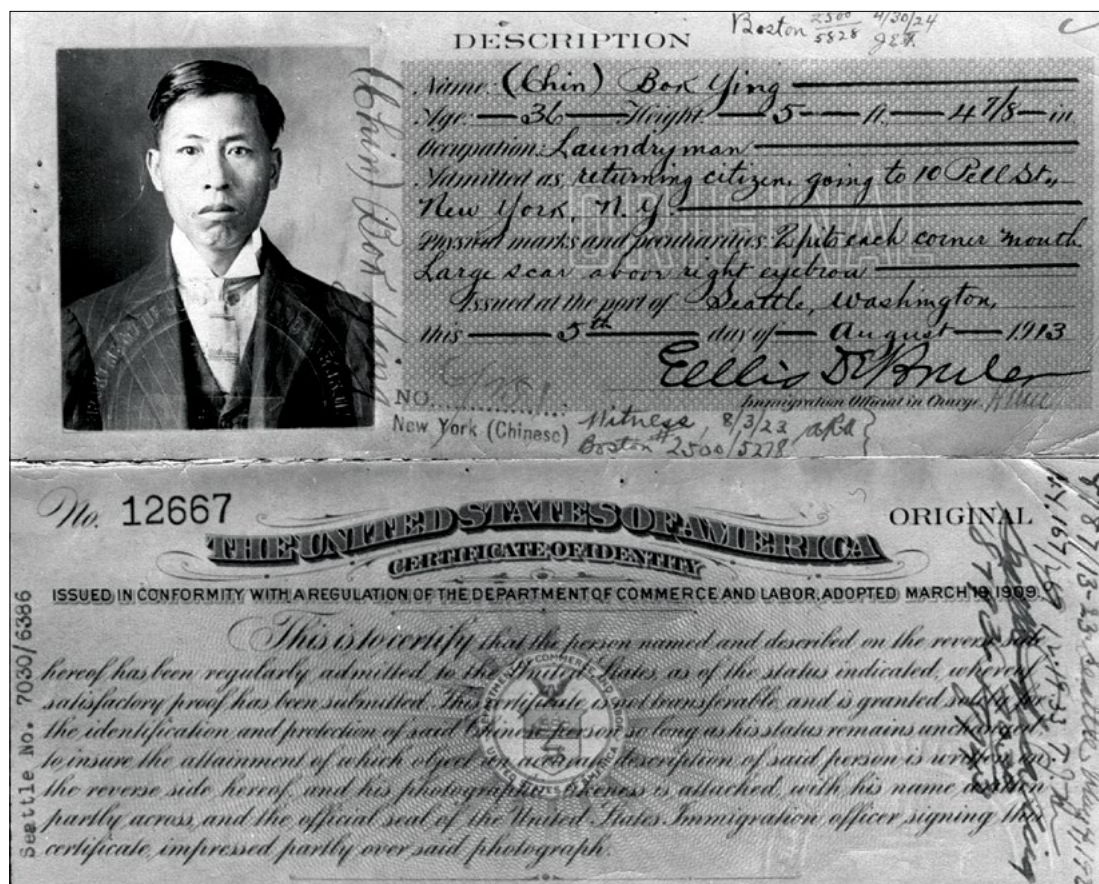 DESCRIPTION
Boston 2500/5828 4/30/24
J.E.F.
Name: (Chin) Bok Ying
Age: 36 Height: 5 ft. 4 7/8 in
Occupation: Laundryman
Admitted as returning citizen, going to 10 Pell St.,
New York, N.Y.
Physical marks and peculiarities: 2 pits each corner mouth
Large scar above right eyebrow
Issued at the port of Seattle, Washington,
this 5th day of August 1913
Ellis DeBruler
Immigration Official in Charge.
ORIGINAL
(Chin) Bok Ying
NO.
New York (Chinese)
Witness, 8/3/23
Boston # 2500/5278
No. 12667
ORIGINAL
THE UNITED STATES OF AMERICA
CERTIFICATE OF IDENTITY
ISSUED IN CONFORMITY WITH A REGULATION OF THE DEPARTMENT OF COMMERCE AND LABOR, ADOPTED MARCH 19, 1909.
This is to certify that the person named and described on the reverse side
hereof has been regularly admitted to the United States, as of the status indicated, whereof
satisfactory proof has been submitted. This certificate is not transferable, and is granted solely for
the identification and protection of said Chinese person so long as his status remains unchanged;
to insure the attainment of which object an accurate description of said person is written on
the reverse side hereof, and his photographic likeness is attached, with his name written
partly across, and the official seal of the United States Immigration officer signing this
certificate, impressed partly over said photograph.
DEPARTMENT OF COMMERCE AND LABOR
UNITED STATES OF AMERICA
Seattle No. 7030/6386